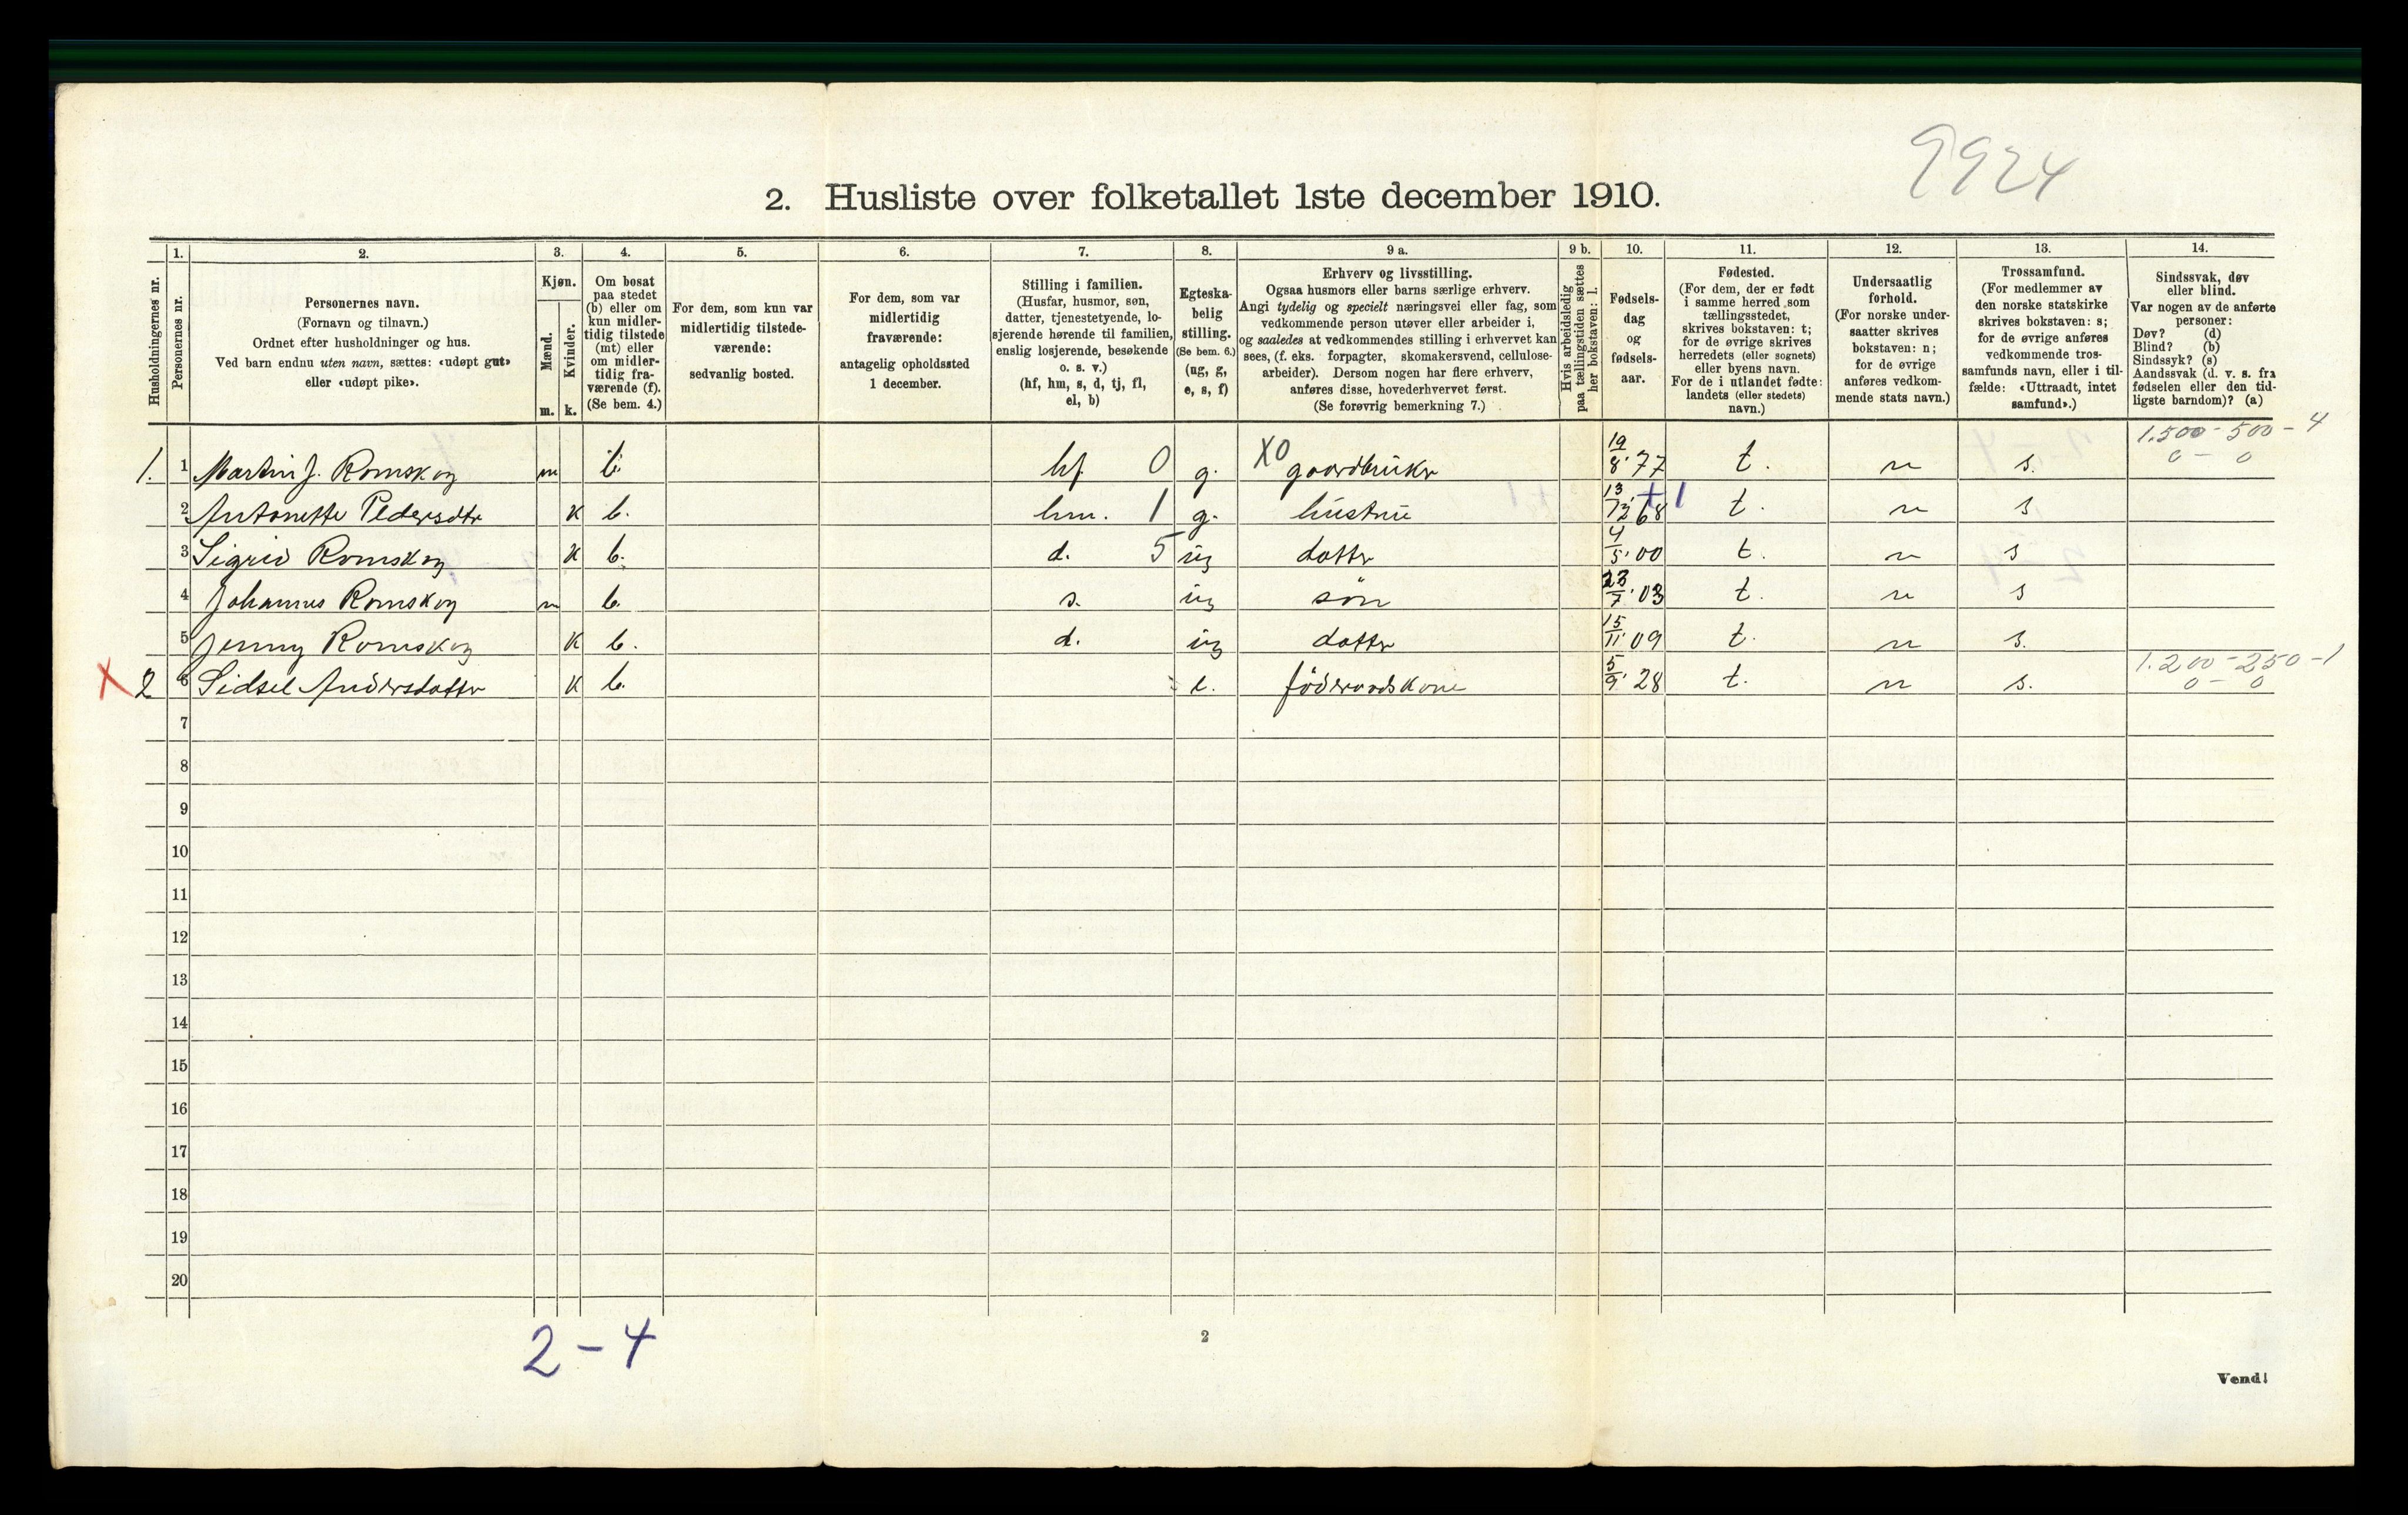 9924
2. Husliste over folketallet 1ste december 1910.
Husholdningernes nr.
1.
Personernes nr.
2.
Personernes navn.
(Fornavn og tilnavn.)
Ordnet efter husholdninger og hus.
Ved barn endnu uten navn, sættes: «udøpt gut»
eller «udøpt pike».
3.
Kjøn.
Mænd.
m.
Kvinder.
k.
4.
Om bosat
paa stedet
(b) eller om
kun midler-
tidig tilstede
(mt) eller
om midler-
tidig fra-
værende (f).
(Se bem. 4.)
5.
For dem, som kun var
midlertidig tilstede-
værende:
sedvanlig bosted.
6.
For dem, som var
midlertidig
fraværende:
antagelig opholdssted
1 december.
7.
Stilling i familien.
(Husfar, husmor, søn,
datter, tjenestetyende, lo-
sjerende hørende til familien,
enslig losjerende, besøkende
o. s. v.)
(hf, hm, s, d, tj, fl,
el, b)
8.
Egteska-
belig
stilling.
(Se bem. 6.)
(ug, g,
e, s, f)
9 a.
Erhverv og livsstilling.
Ogsaa husmors eller barns særlige erhverv.
Angi tydelig og specielt næringsvei eller fag, som
vedkommende person utøver eller arbeider i,
og saaledes at vedkommendes stilling i erhvervet kan
sees, (f. eks. forpagter, skomakersvend, cellulose-
arbeider). Dersom nogen har flere erhverv,
anføres disse, hovederhvervet først.
(Se forøvrig bemerkning 7.)
9 b.
Hvis arbeidsledig
paa tællingstiden sættes
her bokstaven: l.
10.
Fødsels-
dag
og
fødsels-
aar.
11.
Fødested.
(For dem, der er født
i samme herred som
tællingsstedet,
skrives bokstaven: t;
for de øvrige skrives
herredets (eller sognets)
eller byens navn.
For de i utlandet fødte:
landets (eller stedets)
navn.)
12.
Undersaatlig
forhold.
(For norske under-
saatter skrives
bokstaven: n;
for de øvrige
anføres vedkom-
mende stats navn.)
13.
Trossamfund.
(For medlemmer av
den norske statskirke
skrives bokstaven: s;
for de øvrige anføres
vedkommende tros-
samfunds navn, eller i til-
fælde: «Uttraadt, intet
samfund».)
14.
Sindssvak, døv
eller blind.
Var nogen av de anførte
personer:
Døv? (d)
Blind? (b)
Sindssyk? (s)
Aandssvak (d. v. s. fra
fødselen eller den tid-
ligste barndom)? (a)
1.500 - 500 - 4
1. 1 Martin J. Romskog m b. hf 0 g. X0 gaardbruker 19/8 77 t. n s. 0 - 0
2 Antonette Pedersdtr k b. hm. 1 g. hustru 13/12 68 +1 t. n s
3 Sigrid Romskog k b. d. 5 ug datter 4/5 00 t. n s
4 Johannes Romskog m b. s. ug søn 23/7 03 t. n s
5 Jenny Romskog k b. d. ug datter 15/11 09 t. n s.
1.200 - 250 - 1
X 2 6 Sidsel Andersdatter k b. e. föderaadskone 5/9 28 t. n s. 0 - 0
7
8
9
10
11
12
13
14
15
16
17
18
19
20
2 - 4
2
Vend!